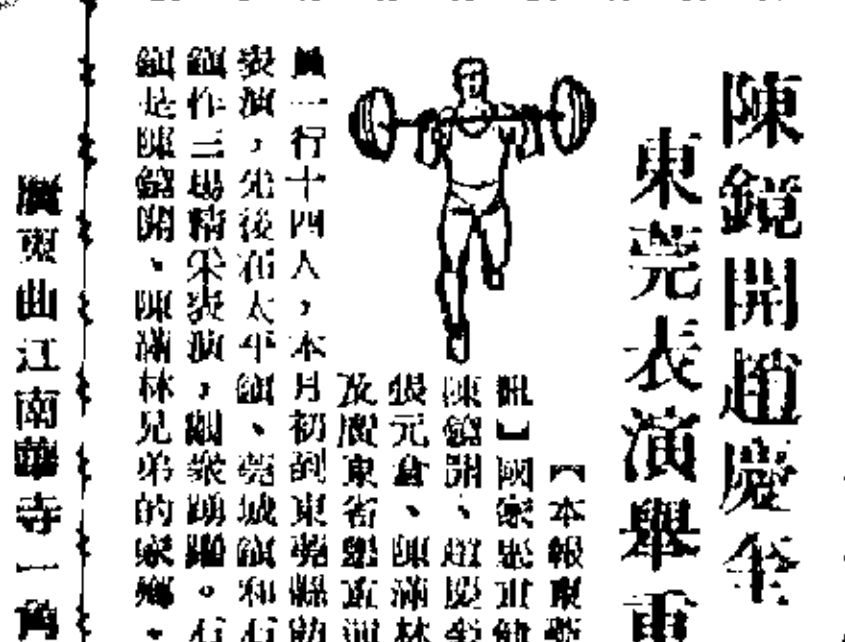 陳鏡開趙慶奎
東莞表演舉重
【本報東莞
訊】國家舉重健
陳鏡開、趙慶奎
張元倉、陳滿林
及廣東省舉重運
員一行十四人，本月初到東莞縣
表演，先後在太平鎮、莞城鎮和石
鎮作三場精采表演，觀衆踴躍。石
鎮是陳鏡開、陳滿林兄弟的家鄉，
廣東曲江南華寺一角